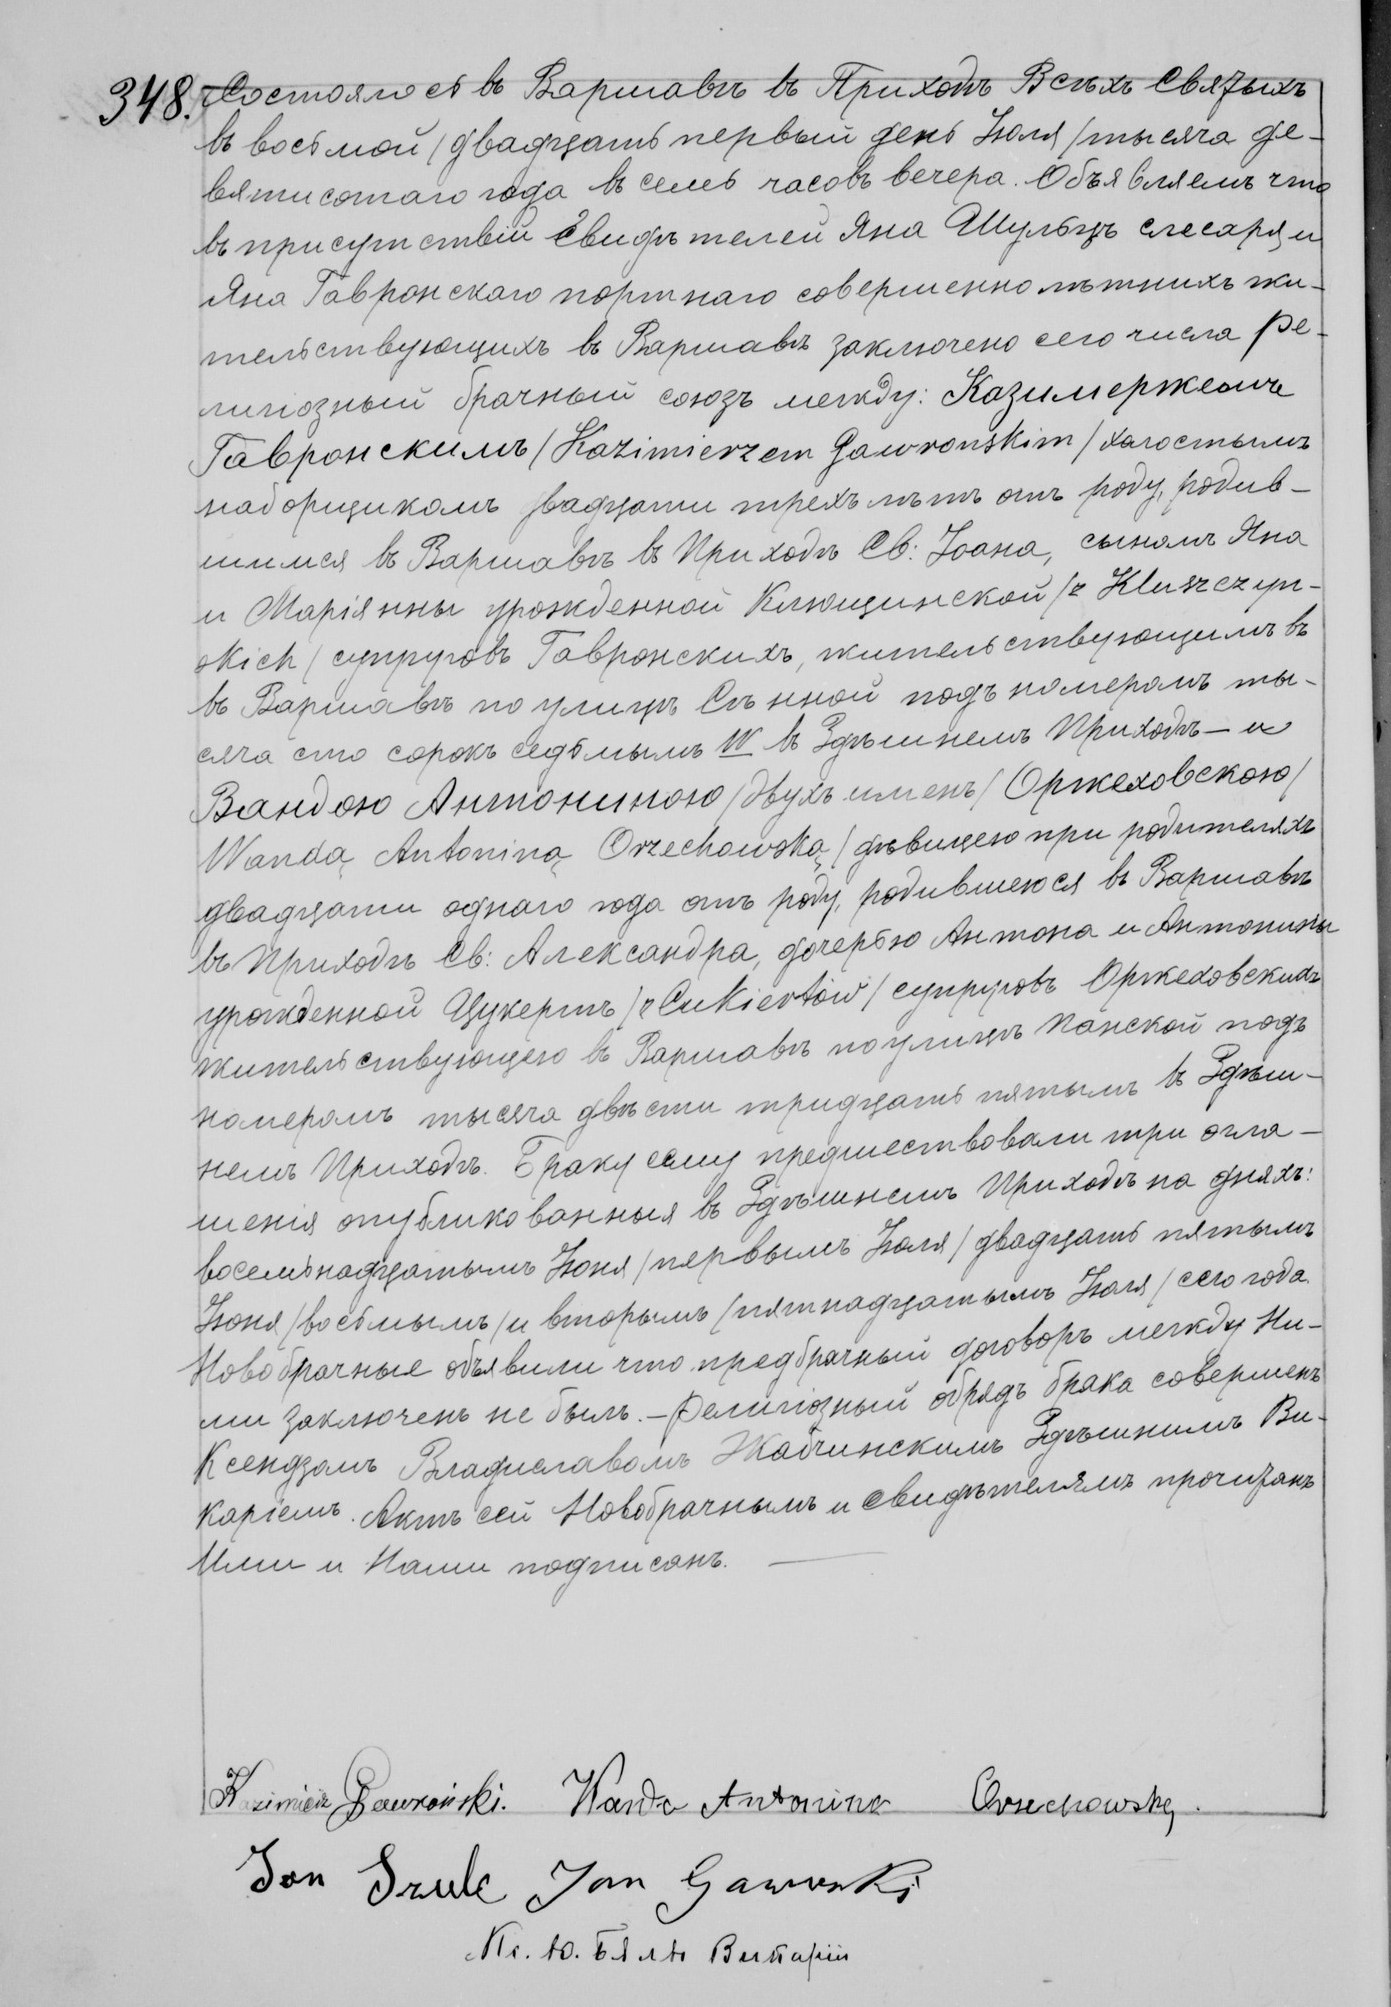 348. Состоялось въ Варшавѣ въ Приходѣ Всѣхъ Святыхъ
въ восьмой / двадцать первый день Iюля / тысяча де-
вятисотаго года въ семь часовъ вечера. Объявляемъ что
въ присутствiи Свидѣтелей Яна Шульцъ слесаря и
Яна Гавронскаго портнаго совершеннолѣтнихъ жи-
тельствующихъ въ Варшавѣ заключено сего числа ре-
лигiозный брачный союзъ между: Казимержемъ
Гавронскимъ / Kazimierzem Gawronskim / холостымъ
наборщикомъ двадцати трехъ лѣтъ отъ роду, родив-
шимся въ Варшавѣ въ Приходѣ Св: Iоана, сыномъ Яна
и Марiянны урожденной Клющинской / z Kluszczyn-
skich / супруговъ Гавронскихъ, жительствующимъ въ
въ Варшавѣ по улицѣ Сѣнной подъ номеромъ ты-
сяча сто сорокъ седьмымъ W въ Здѣшнемъ Приходѣ — и
Вандою Антониною / двухъ именъ / Оржеховскою /
Wandą Antoniną Orzechowską / дѣвицею при родителяхъ
двадцати однаго года отъ роду, родившеюся въ Варшавѣ
въ Приходѣ Св: Александра, дочерью Антона и Антонины
урожденной Цукертъ / z Cukiertów / супруговъ Оржеховскихъ
жительствующею въ Варшавѣ по улицѣ Панской подъ
номеромъ тысяча двѣсти тридцать пятымъ въ Здѣш-
немъ Приходѣ. Браку сему предшествовали три огла-
шенiя опубликованныя въ Здѣшнемъ Приходѣ на дняхъ:
восемьнадцатымъ Iюня / первымъ Iюля / двадцать пятымъ
Iюня / восьмымъ / и вторымъ / пятнадцатымъ Iюля / сего года.
Новобрачные объявили что предбрачный договоръ между Ни-
ми заключенъ не былъ. — Религiозный обрядъ брака совершенъ
Ксендзомъ Владиславомъ Жабчинскимъ Здѣшнимъ Ви-
карiемъ. Актъ сей Новобрачнымъ и Свидѣтелямъ прочитанъ
Ими и Нами подписанъ.
Kazimierz Gawroński. Wanda Antonina Orzechowska.
Jan Szulc Jan Gawronski
Кс. Ю. Бялы Викарiй